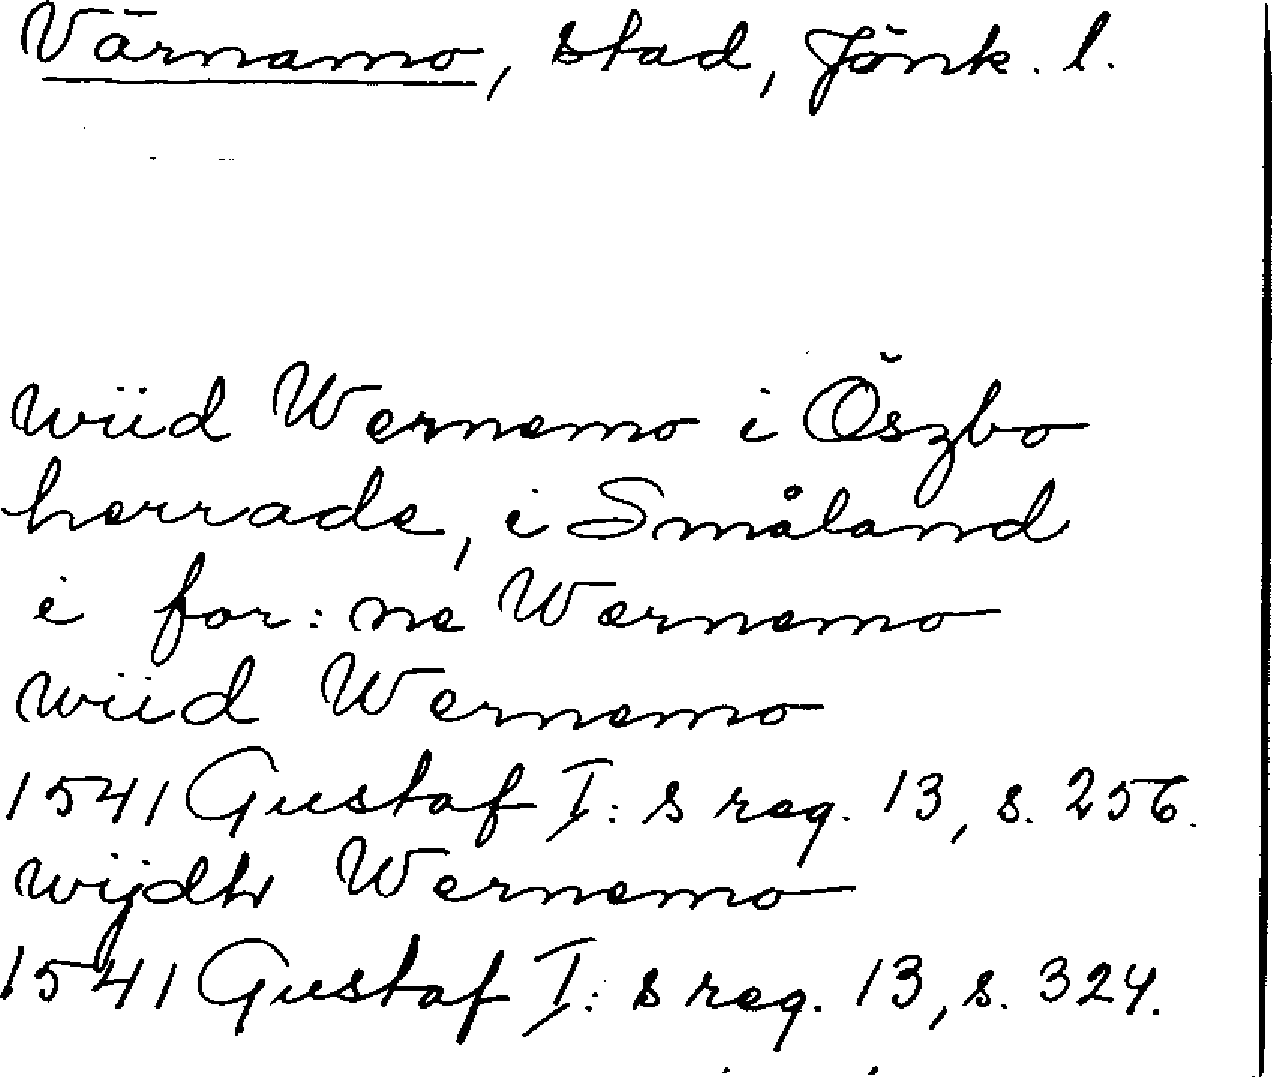 Värnamo, stad, Jönk. l.
wiid Wernemo i Öszbo
herrade, i Småland
i for: ne Wernemo
wiid Wernemo
1541 Gustaf I: s reg. 13, s. 256.
wijdh Wernemo
1541 Gustaf I: s reg. 13, s. 324.